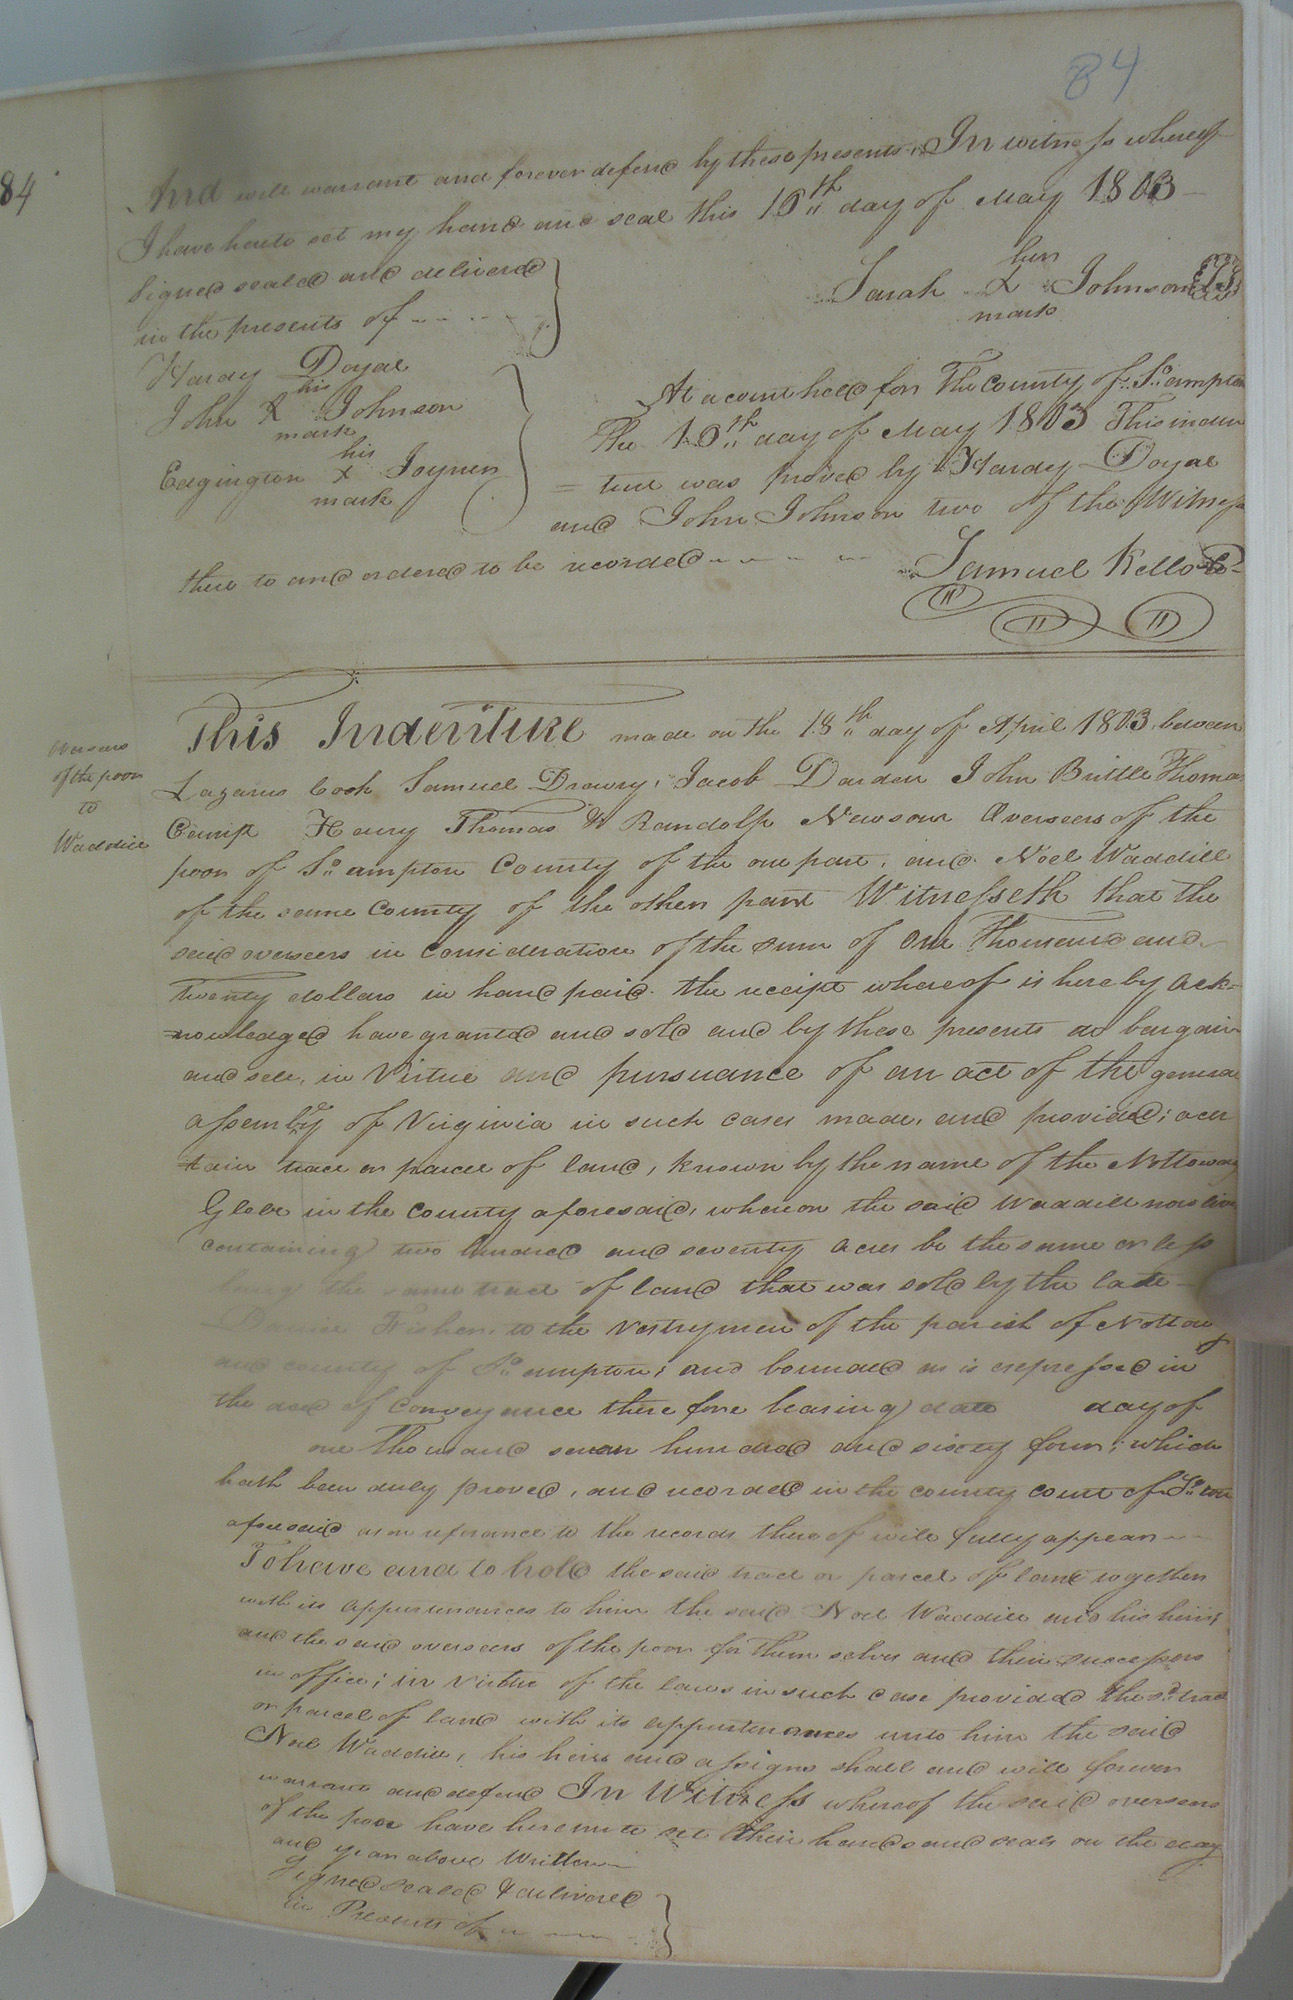 84
84
And will warrant and forever defend by these presents, In witness whereof
I have hereto set my hand and seal this 16th day of May 1803
her
Sarah X Johnson
mark
Signed sealed and delivered
in the presents of
Hardy Doyal
his
John X Johnson
mark
his
Edgington X Joyner
mark
At a court held for The County of So. ampton
The 16th day of May 1803 This inden
= ture was proved by Hardy Doyal
and John Johnson two of the Witness
there to and ordered to be recorded
Samuel Kello
Overseers
of the poor
to
Waddill
This Indenture made on the 18th day of April 1803 between
Lazarus Cook Samuel Drewry, Jacob Darden John Brittle Thomas
Henry Thomas & Randolph Newsom Overseers of the
poor of So. ampton County of the one part, and Noel Waddill
of the same County of the other part Witnesseth that the
said overseers in consideration of the sum of One Thousand and
twenty dollars in hand paid the receipt whereof is hereby Ack=
=nowledged have granted and sold and by these presents do bargain
and sell, in Virtue and pursuance of an act of the general
assembly of Virginia in such cases made, and provided; a cer
tain tract or parcel of land, known by the name of the Nottoway
Glebe in the county aforesaid, whereon the said Waddill now lives
containing two hundred and seventy Acres be the same or less
being the same tract of land that was sold by the late
Daniel Fisher, to the Vestrymen of the parish of Nottoway
and county of So. ampton; and bounded as is expressed in
the deed of Conveyance there fore bearing date day of
one thousand seven hundred and sixty four; which
hath been duly proved, and recorded in the county court of So. ton
aforesaid as on referance to the records thereof will fully appear
To have and to hold the said tract or parcel of land together
with its appurtenances to him the said Noel Waddill and his heirs
and the said overseers of the poor for them selves and their successors
in office; in virtue of the laws in such case provided the sd. tract
or parcel of land with its appurtenances unto him the said
Noel Waddill, his heirs and assigns shall and will forever
warrant and defend In Witness whereof the said overseers
of the poor have hereunto set their hands and seals on the day
and year above Written
Signed sealed & delivered
in Presents of